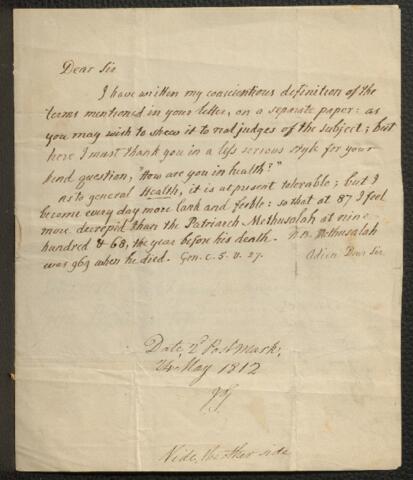 Dear Sir
I have written my conscientious definition of the
terms mentioned in your letter, on a separate paper: as
you may wish to shew it to real judges of the subject; but
here I must thank you in a less serious style for your
kind question, How are you in health?"
As to general Health, it is at present tolerable; but I
become every day more lank and feeble: so that at 87 I feel
more decrepid than the Patriarch Methusalah at nine
hundred & 68, the year before his death. N.B. Methusalah
was 969 when he died. Gen. c. 5. v. 27. Adieu Dear Sir
Date, & Post Mark;
24 May 1812
Vide, the other side